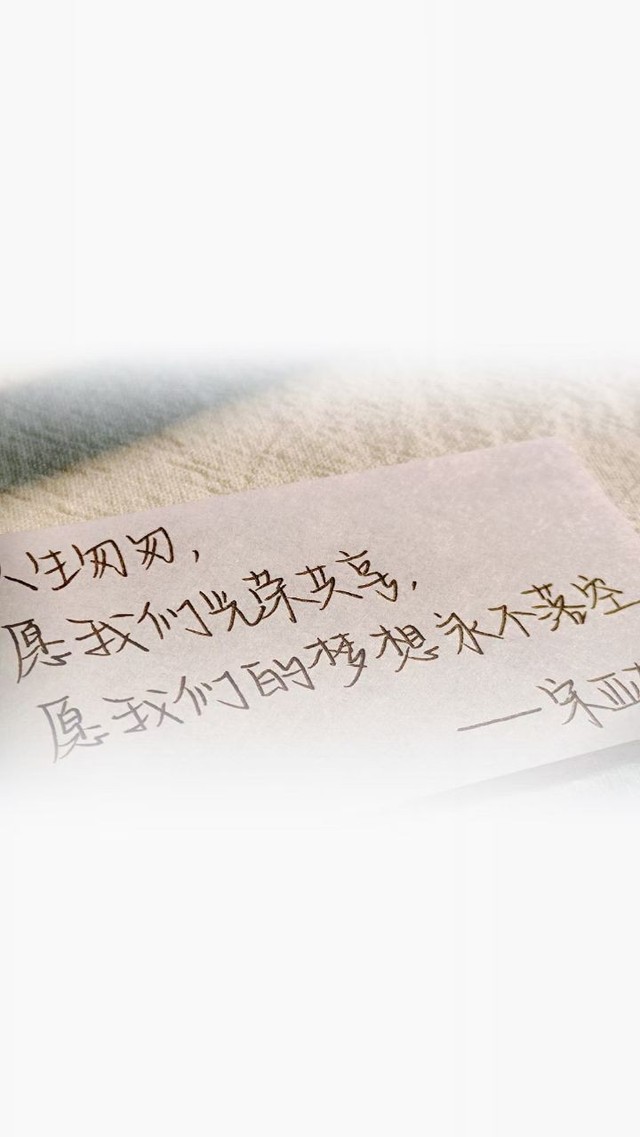 人生匆匆，
愿我们光荣共享，
愿我们的梦想永不落空
——宋亚